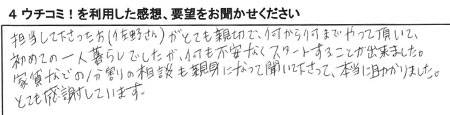 4 ウチコミ！を利用した感想、要望をお聞かせください
担当して下さったお(佐野さん)がとても親切で、何から何までやって頂いて、
初めての一人暮らしでしたが、何も不安なくスタートすることが出来ました。
家賃などの分割の相談も親身になって聞いて下さって、本当に助かりました。
とても感謝しています。